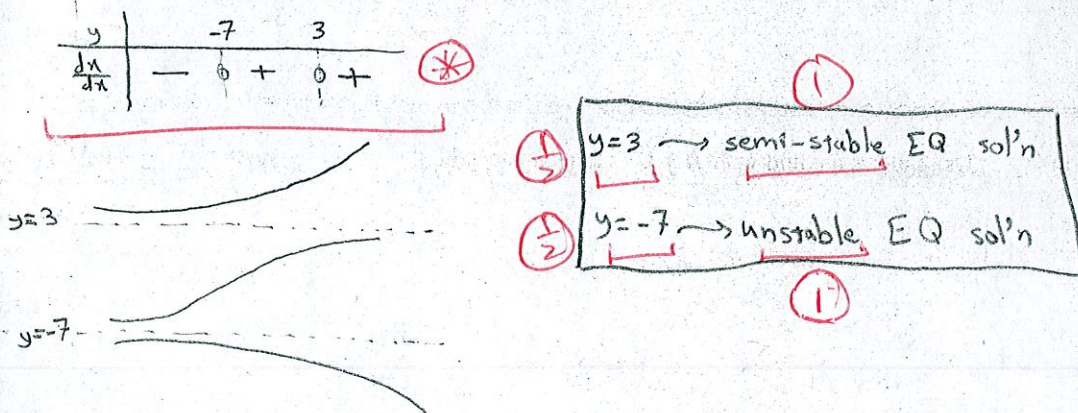 y -7 3
dx/dx − 0 + 0 +
*
1
1/2 y=3 → semi-stable EQ sol'n
y=3
1/2 y=-7 → unstable EQ sol'n
1
y=-7